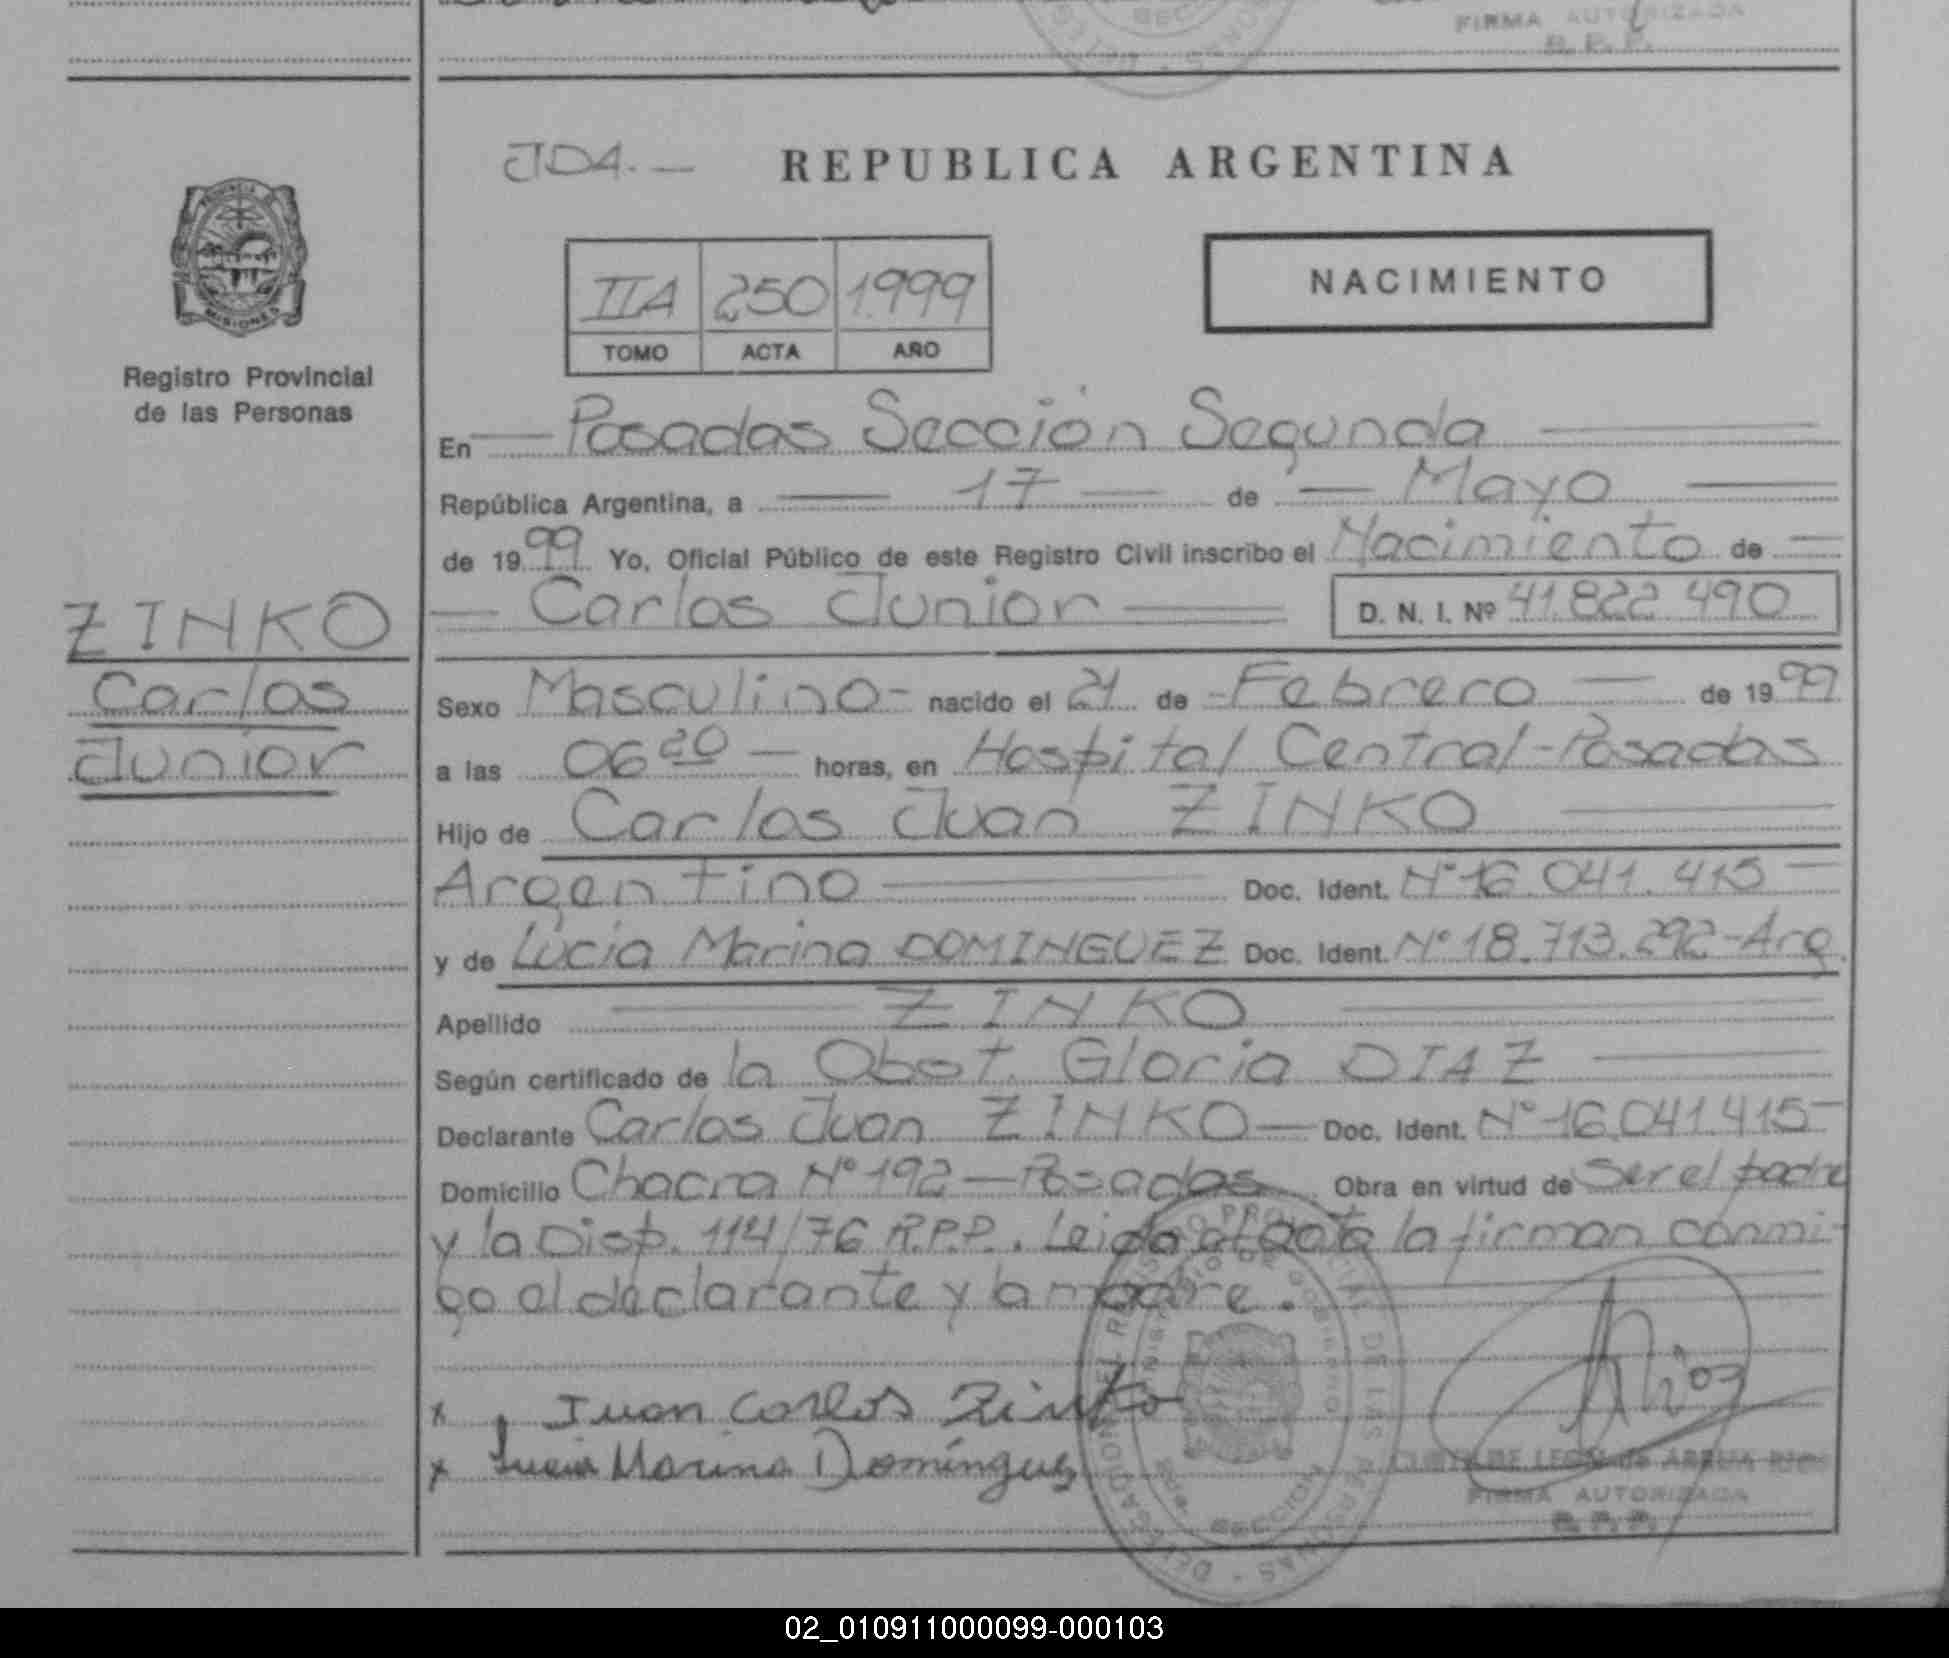 FIRMA AUTORIZADA
R. P. P.
JDA.—
REPUBLICA ARGENTINA
IIA 250 1.999
TOMO ACTA AÑO
NACIMIENTO
MISIONES
Registro Provincial
de las Personas
En Posadas Sección Segunda
República Argentina, a 17 de Mayo
de 1999 Yo, Oficial Público de este Registro Civil inscribo el Nacimiento de
Carlos Junior D. N. I. Nº 41.822.490
ZINKO
Carlos
Junior
Sexo Masculino- nacido el 21 de Febrero de 1999
a las 06 20 horas, en Hospital Central-Posadas
Hijo de Carlos Juan ZINKO
Argentino Doc. Ident. Nº 16.041.415
y de Lucia Marina DOMINGUEZ Doc. Ident. Nº 18.713.292-Arg.
Apellido ZINKO
Según certificado de la Obst. Gloria DIAZ
Declarante Carlos Juan ZINKO Doc. Ident. Nº 16.041.415
Domicilio Chacra Nº 192 — Posadas Obra en virtud de Ser el padre
y la Disp. 114/76 R.P.P.. Leida el acta la firman conmi-
go el declarante y la madre.
x Juan Carlos Zinko
x Lucia Marina Domínguez
REGISTRO PROVINCIAL DE LAS PERSONAS - DELEGACION
MINISTERIO DE GOBIERNO
SECCION
Rios
FIRMA AUTORIZADA
R. P. P.
02_010911000099-000103